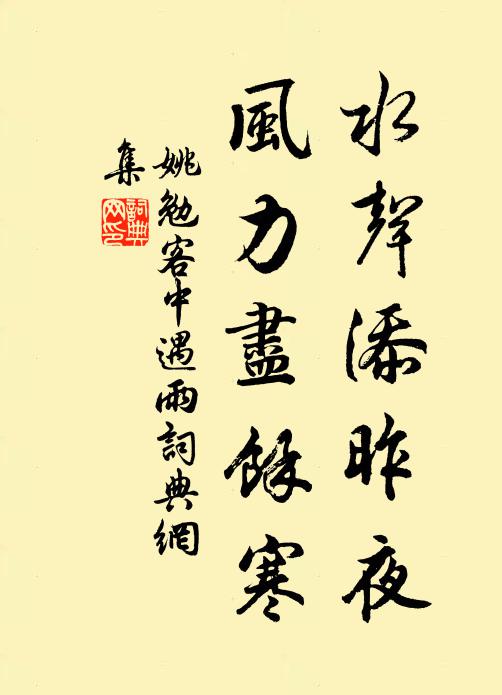 水聲添昨夜
風力盡餘寒
姚勉客中遇雨詞典網
集
詞典網印